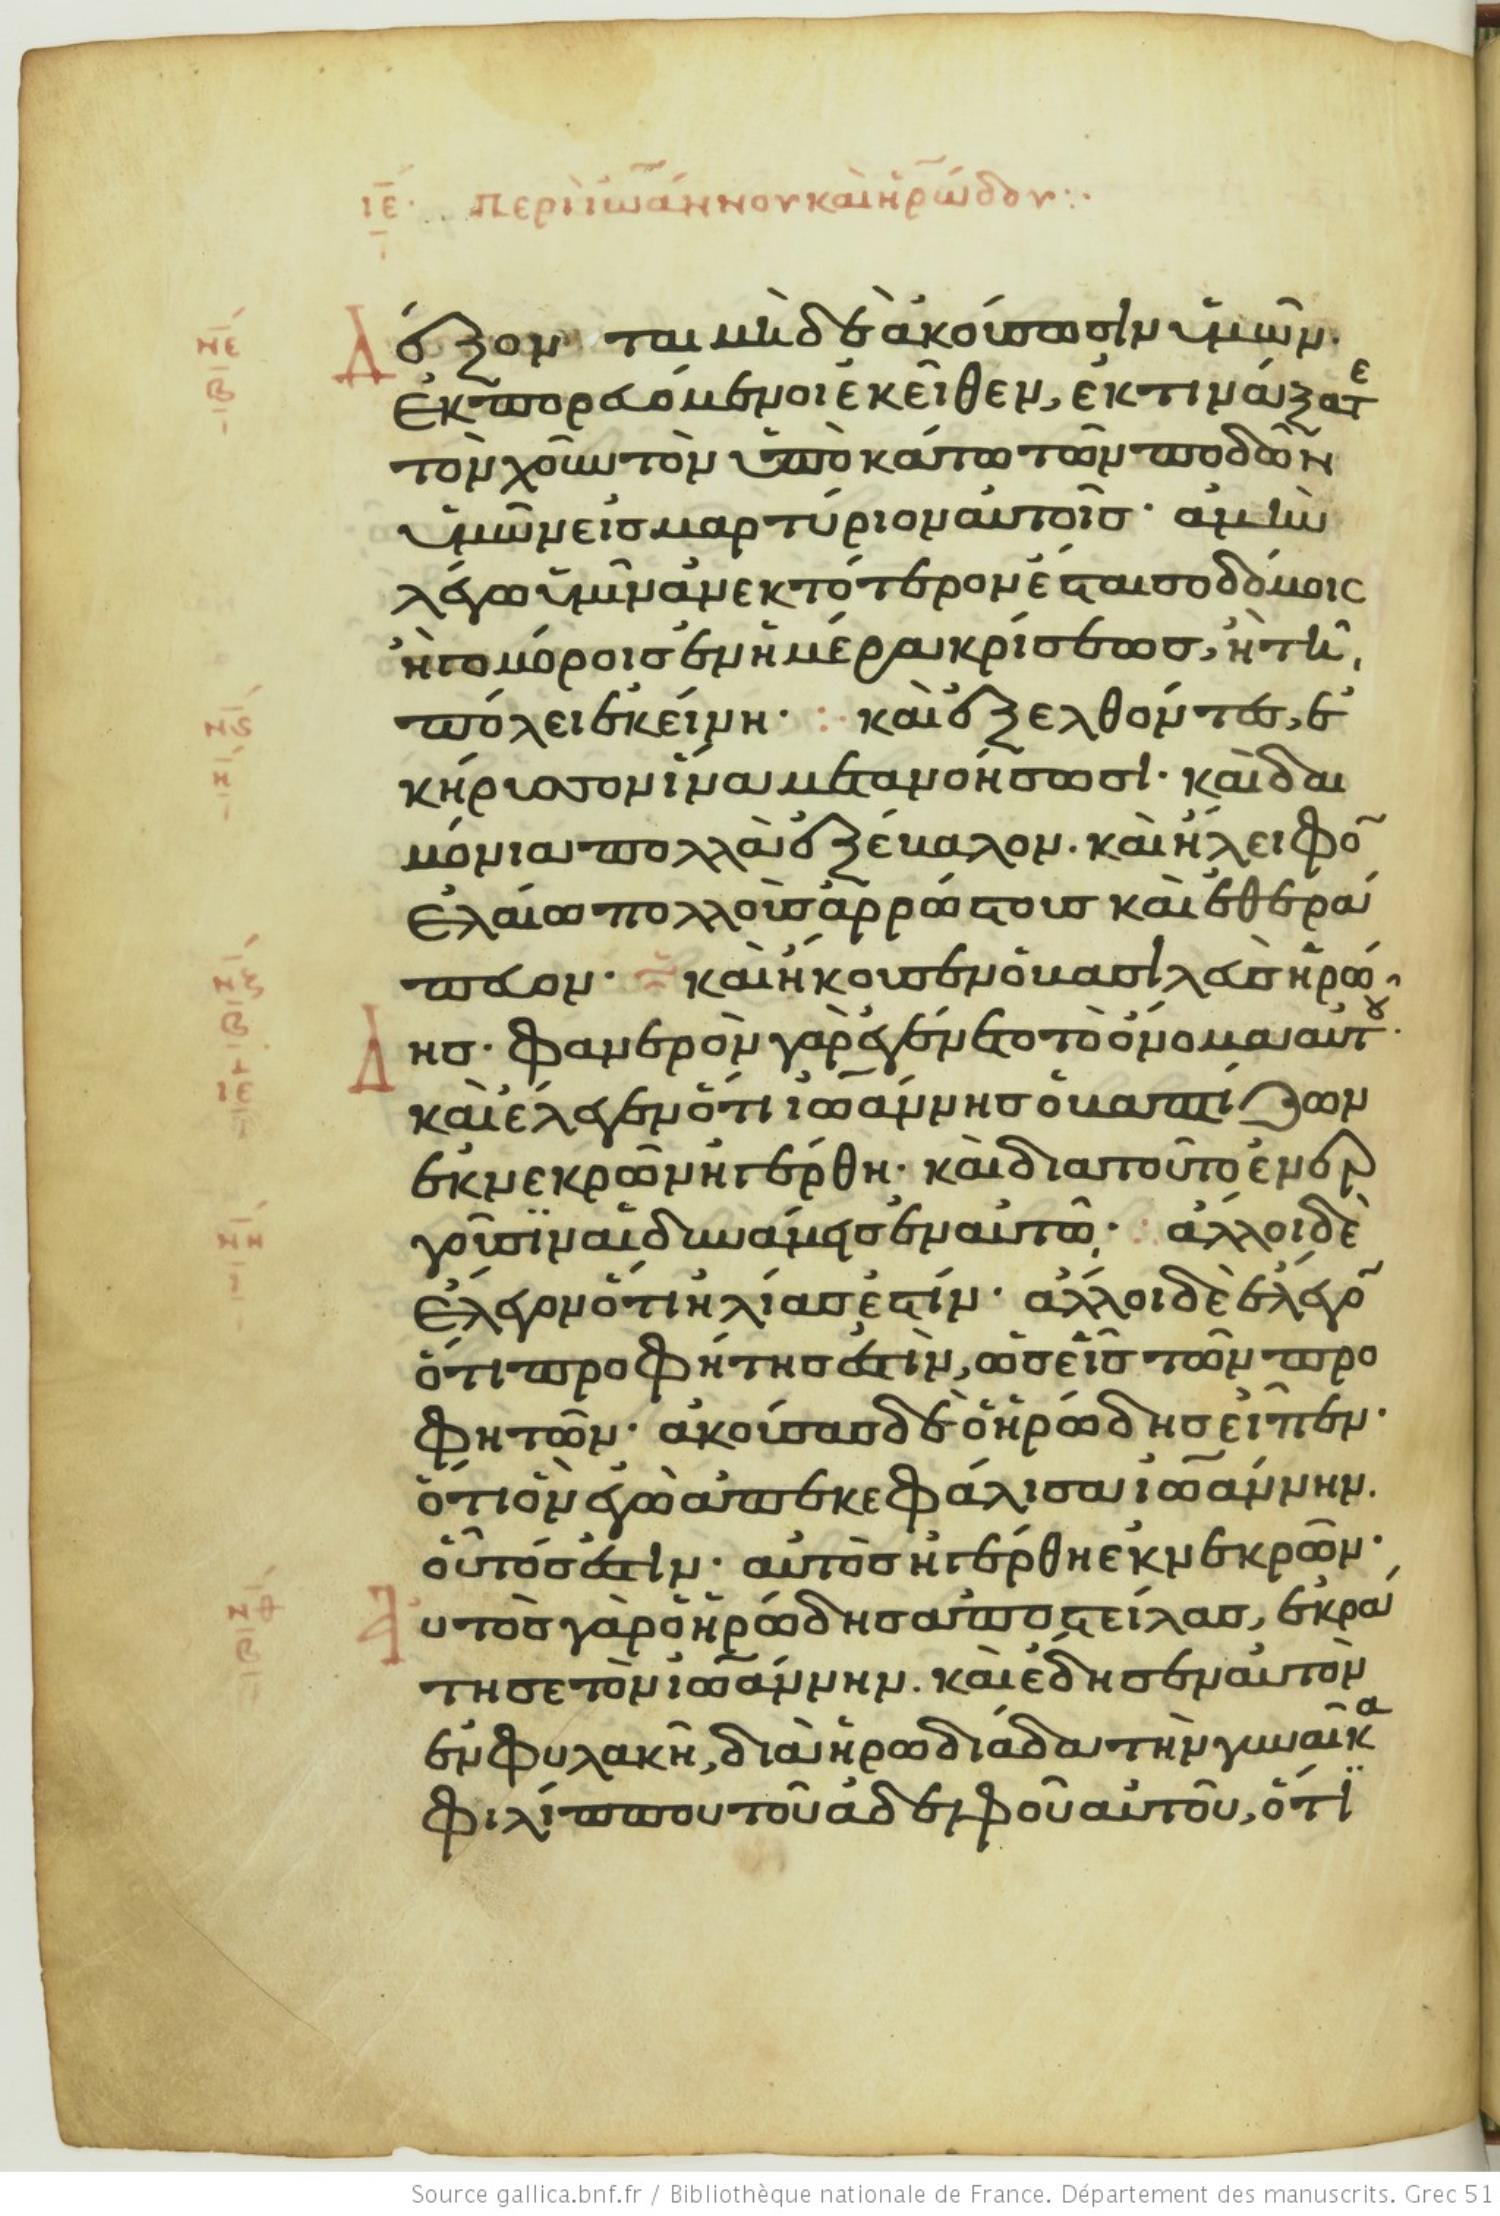 ιε· περι ιωάννου και ηρώδου:·
Δέξονται μὴ δὲ ἀκούσωσιν ὑμῶν·
ἐκπορευόμενοι ἐκεῖθεν, ἐκτινάξατε
τὸν χοῦν τὸν ὑποκάτω τῶν ποδῶν
ὑμῶν εἰς μαρτύριον αὐτοῖς· ἀμὴν
λέγω ὑμῖν ἀνεκτότερον ἔσται σοδόμοις
ἢ γομόροις ἐν ἡμέρα κρίσεως, ἢ τῆ
πόλει ἐκείνη· : καὶ ἐξελθόντες, ἐ
κήρυσσον ἵνα μετανοήσωσι· καὶ δαι
μόνια πολλὰ ἐξέβαλον. καὶ ἤλειφο̄
ἐλαίω πολλοὺς ἀρρώστους καὶ ἐθερά
πευον· καὶ ἤκουσεν ὁ βασιλεὺς ἡρώ
Δης· φανερὸν γὰρ ἐγένετο τὸ ὄνομα αὐτοῦ·
καὶ ἔλεγεν ὅτι ἰωάννης ὁ βαπτίζων
ἐκ νεκρῶν ἠγέρθη· καὶ διατοῦτο ἐνερ
γοῦσϊν αἱ δυνάμεις ἐν αὐτῶ· : ἄλλοι δὲ
ἔλεγον ὅτι ἠλίας ἐστίν· ἄλλοι δὲ ἔλεγο̄
ὅτι προφήτης ἐστὶν, ὡς εἷς τῶν προ
φητῶν· ἀκούσας δὲ ὁ ἡρώδης εἶπεν·
ὅτι ὃν ἐγὼ ἀπεκεφάλισα ἰωάννην.
οὗτός ἐστιν· αὐτὸς ἠγέρθη ἐκ νεκρῶν·
Αὐτὸς γὰρ ὁ ἡρώδης ἀποστείλας, ἐκρά
τησε τὸν ἰωάννην. καὶ ἔδησεν αὐτὸν
ἐν φυλακῆ, διὰ ἡρωδιάδα τὴν γυναῖκα
φιλίππου τοῦ ἀδελφοῦ αὐτοῦ, ὅτϊ
Source gallica.bnf.fr / Bibliothèque nationale de France. Département des manuscrits. Grec 51